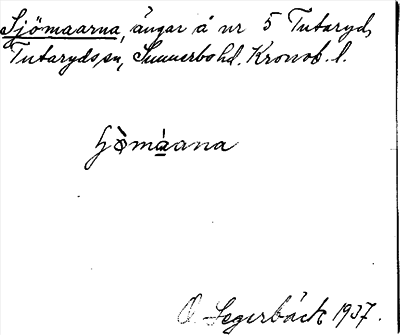 Sjömaarna, ängar å nr 5 Tutaryd,
Tutaryds sn, Sunnerbo hd. Kronob. l.
ʃjòmàana
O. Segerbäck 1937.